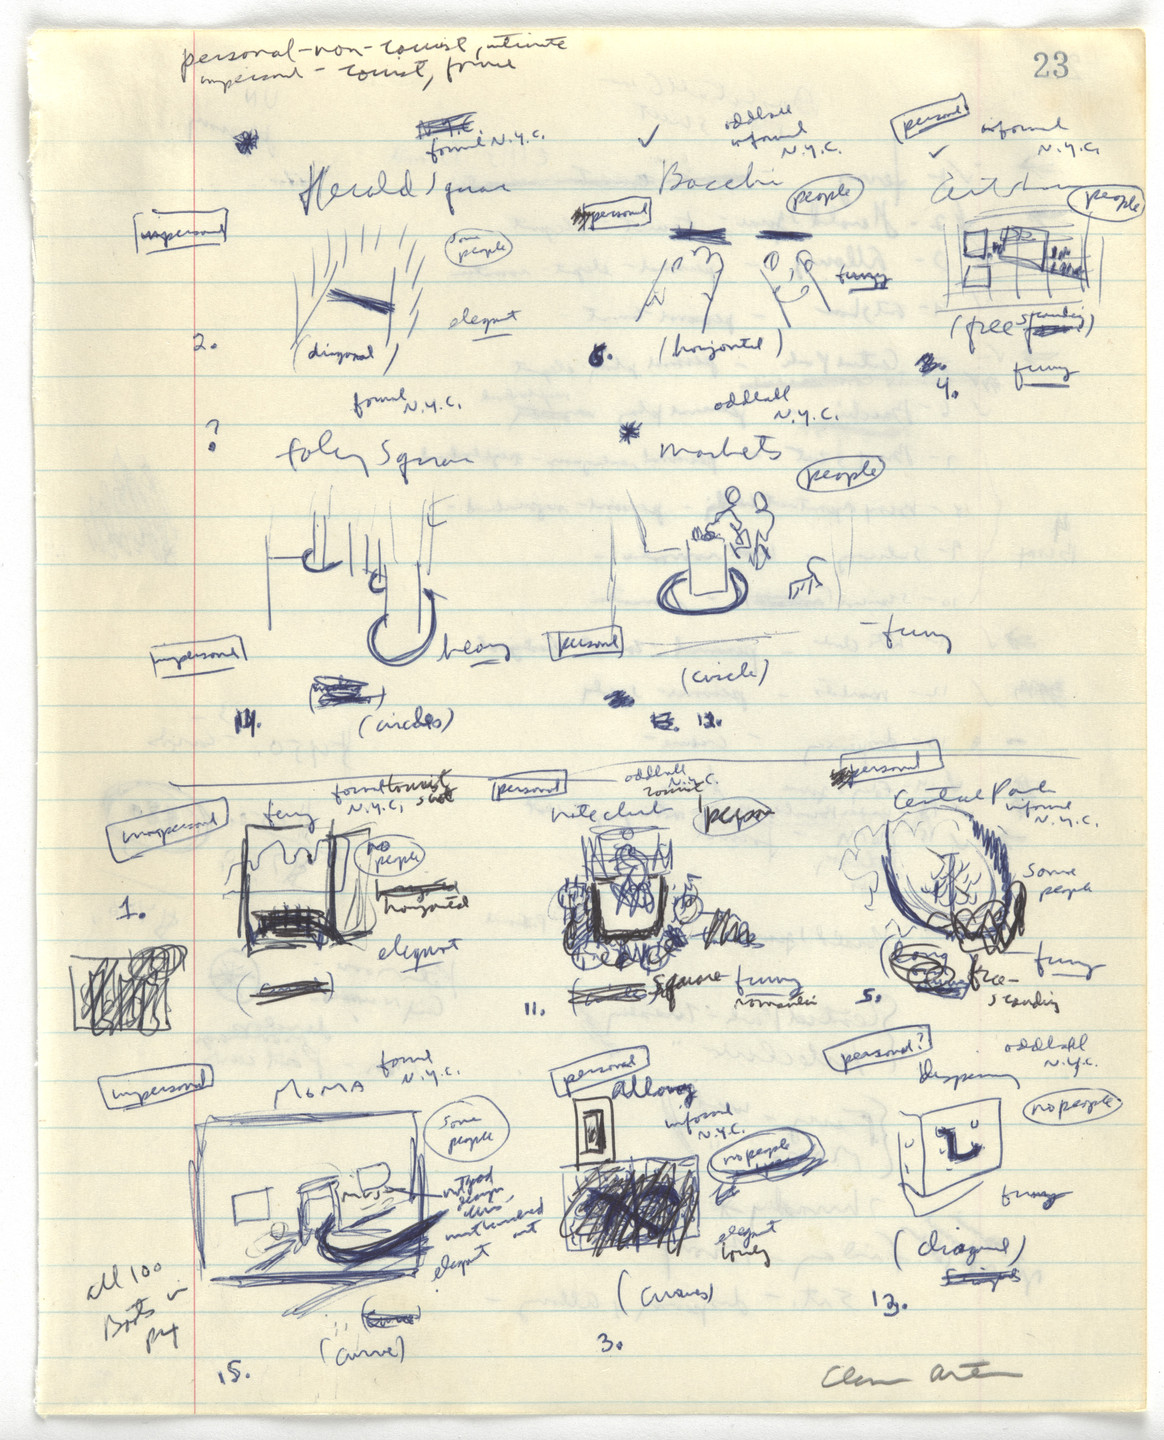 personal-non-tourist, intimate
impersonal - tourist, formal
23
formal N.Y.C.
oddball
informal
N.Y.C.
personal
informal
N.Y.C.
Herald Square
Bocchi
people
people
impersonal
personal
some
people
funny
elegant
(free standing)
2.
(diagonal)
6.
(horizontal)
4.
funny
formal N.Y.C.
oddball
N.Y.C.
?
foley Square
markets
people
impersonal
heavy
personal
- funny
(circle)
14.
(circles)
12.
impersonal
formal tourist
N.Y.C. shot
ferry
personal
oddball
N.Y.C.
tourist
niteclub
person
personal
Central Park
informal
N.Y.C.
no
people
horizontal
some
people
1.
elegant
funny
square
funny
romantic
free-
standing
11.
5.
impersonal
MoMA
formal
N.Y.C.
personal
Alloway
informal
N.Y.C.
personal?
oddball
N.Y.C.
some
people
no people
no people
not good
design
must
art
elegant
elegant
funny
(diagonal)
all 100
Boots in
pix
(curve)
(curves)
13.
15.
3.
Eleanor Antin